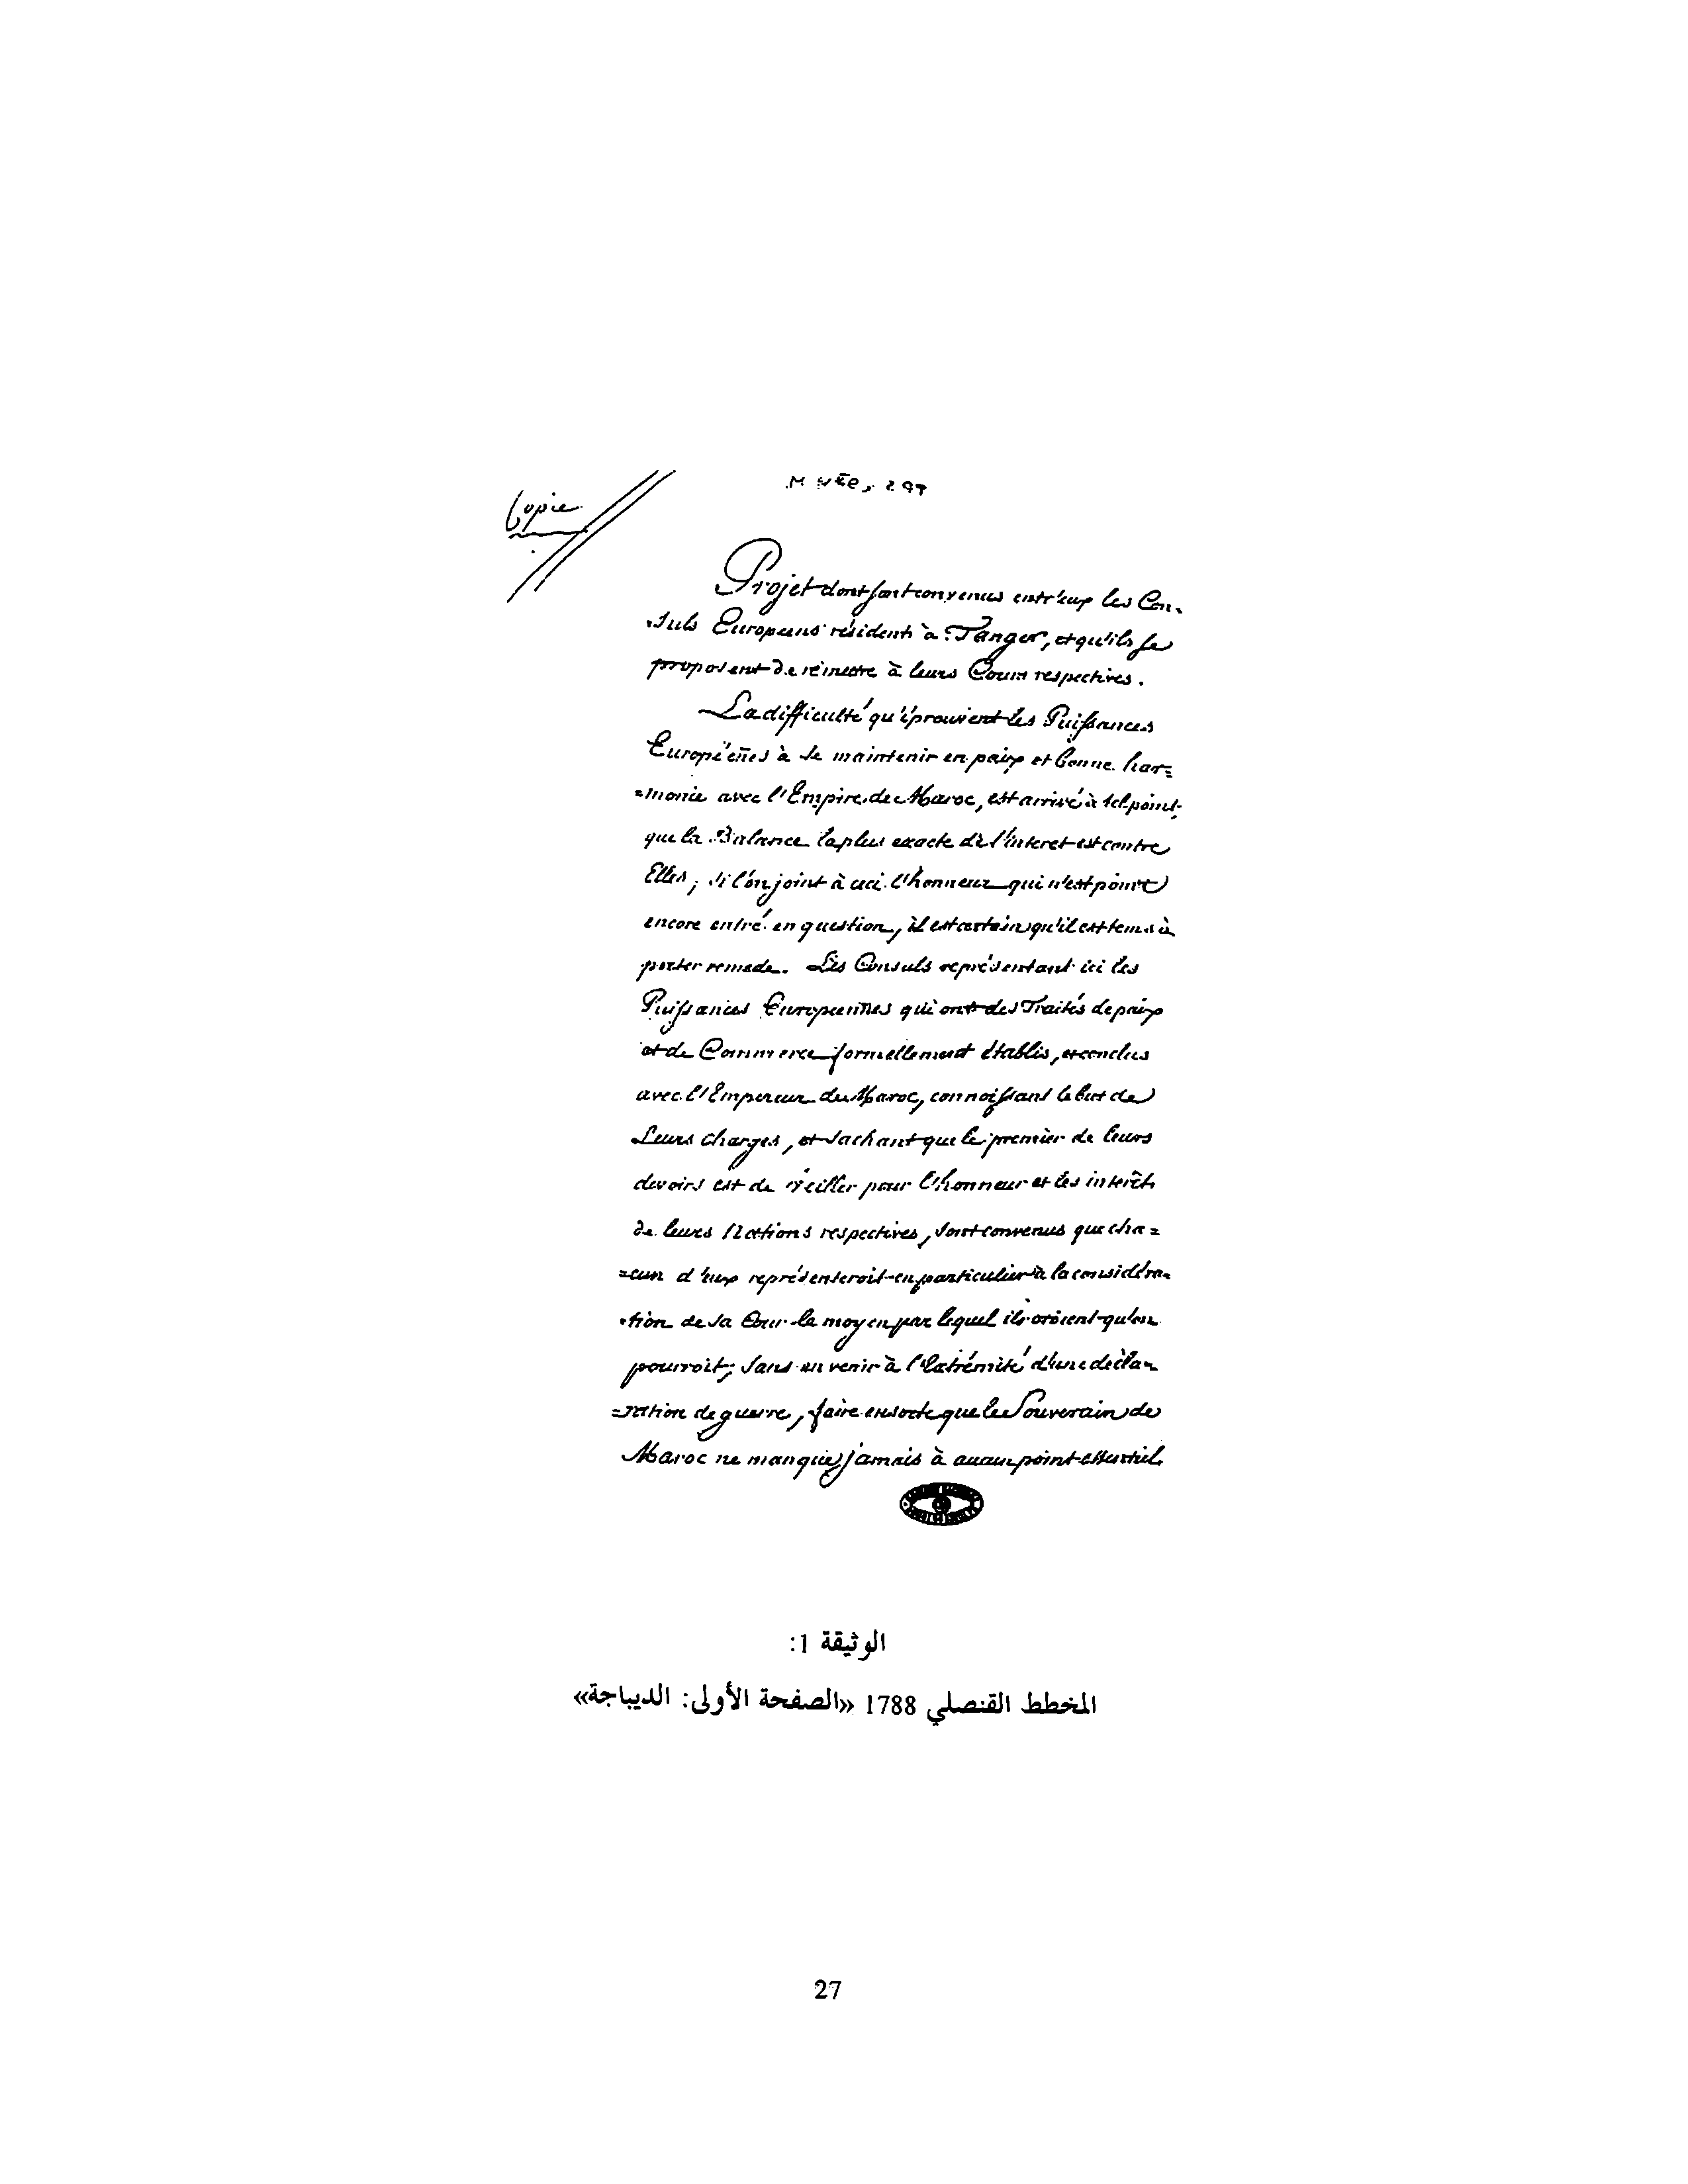 Copie
Projet dont sont convenus entr'eux les Con-
-suls Européens résidents à Tanger, et qu'ils se
proposent de remettre à leurs Cours respectives.
La difficulté qu'éprouvent les Puissances
Européenes à se maintenir en paix et bonne har=
=monie avec l'Empire de Maroc, est arrivé à tel point
que la Balance la plus exacte de l'interet est contre
Elles; si l'on joint à ceci l'honneur qui n'est point
encore entré en question, il est certain qu'il est tems à
porter remede. Les Consuls représentant ici les
Puissances Européennes qui ont des Traités de paix
et de Commerce formellement établis, et conclus
avec l'Empereur de Maroc, connoissant le but de
Leurs charges, et sachant que le premier de leurs
devoirs est de veiller pour l'honneur et les interêts
de leurs Nations respectives, sont convenus que cha=
=cun d'eux représenteroit en particulier à la considéra-
-tion de sa Cour le moyen par lequel ils croient qu'on
pourroit, sans en venir à l'extrémité d'une décla-
=ration de guerre, faire ensorte que le Souverain de
Maroc ne manque jamais à aucun point essentiel
الوثيقة 1:
المخطط القنصلي 1788 «الصفحة الأولى: الديباجة»
27